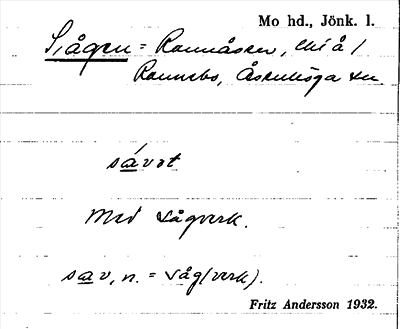 Mo hd., Jönk. l.
Siågen = Rannåsen,
Rannebo, Åskenhöga
sávət
med sågverk.
sav, n. = såg(verk).
Fritz Andersson 1932.